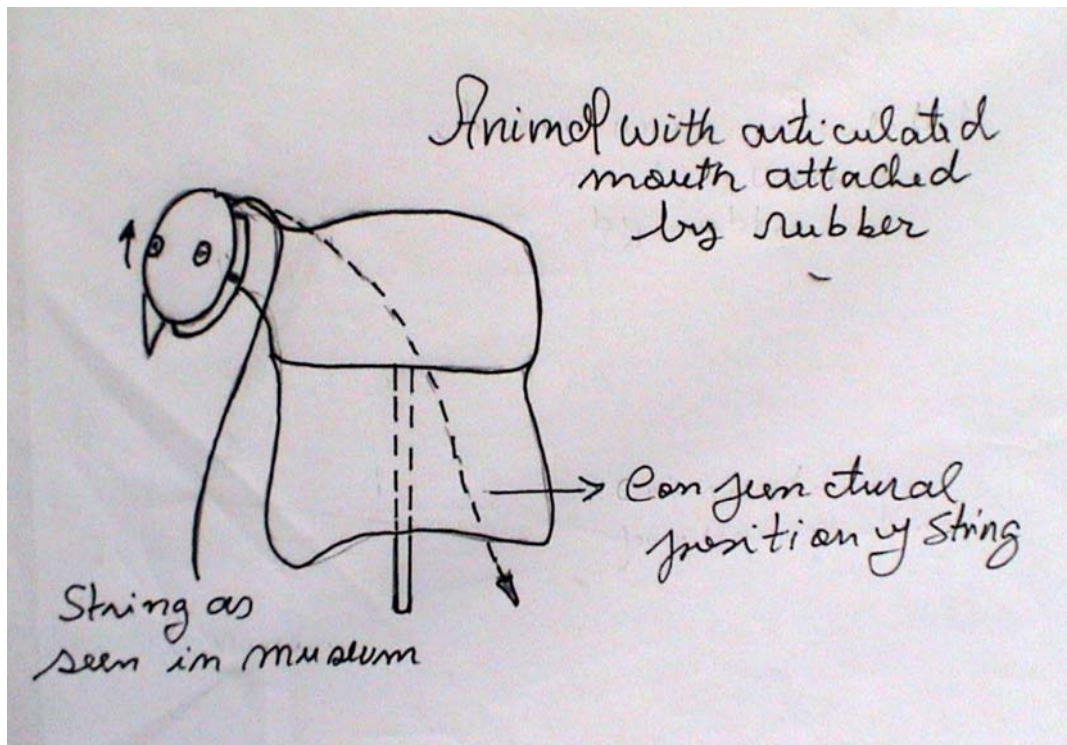 Animal with articulated
mouth attached
by rubber
Conjunctural
position of string
String as
seen in museum